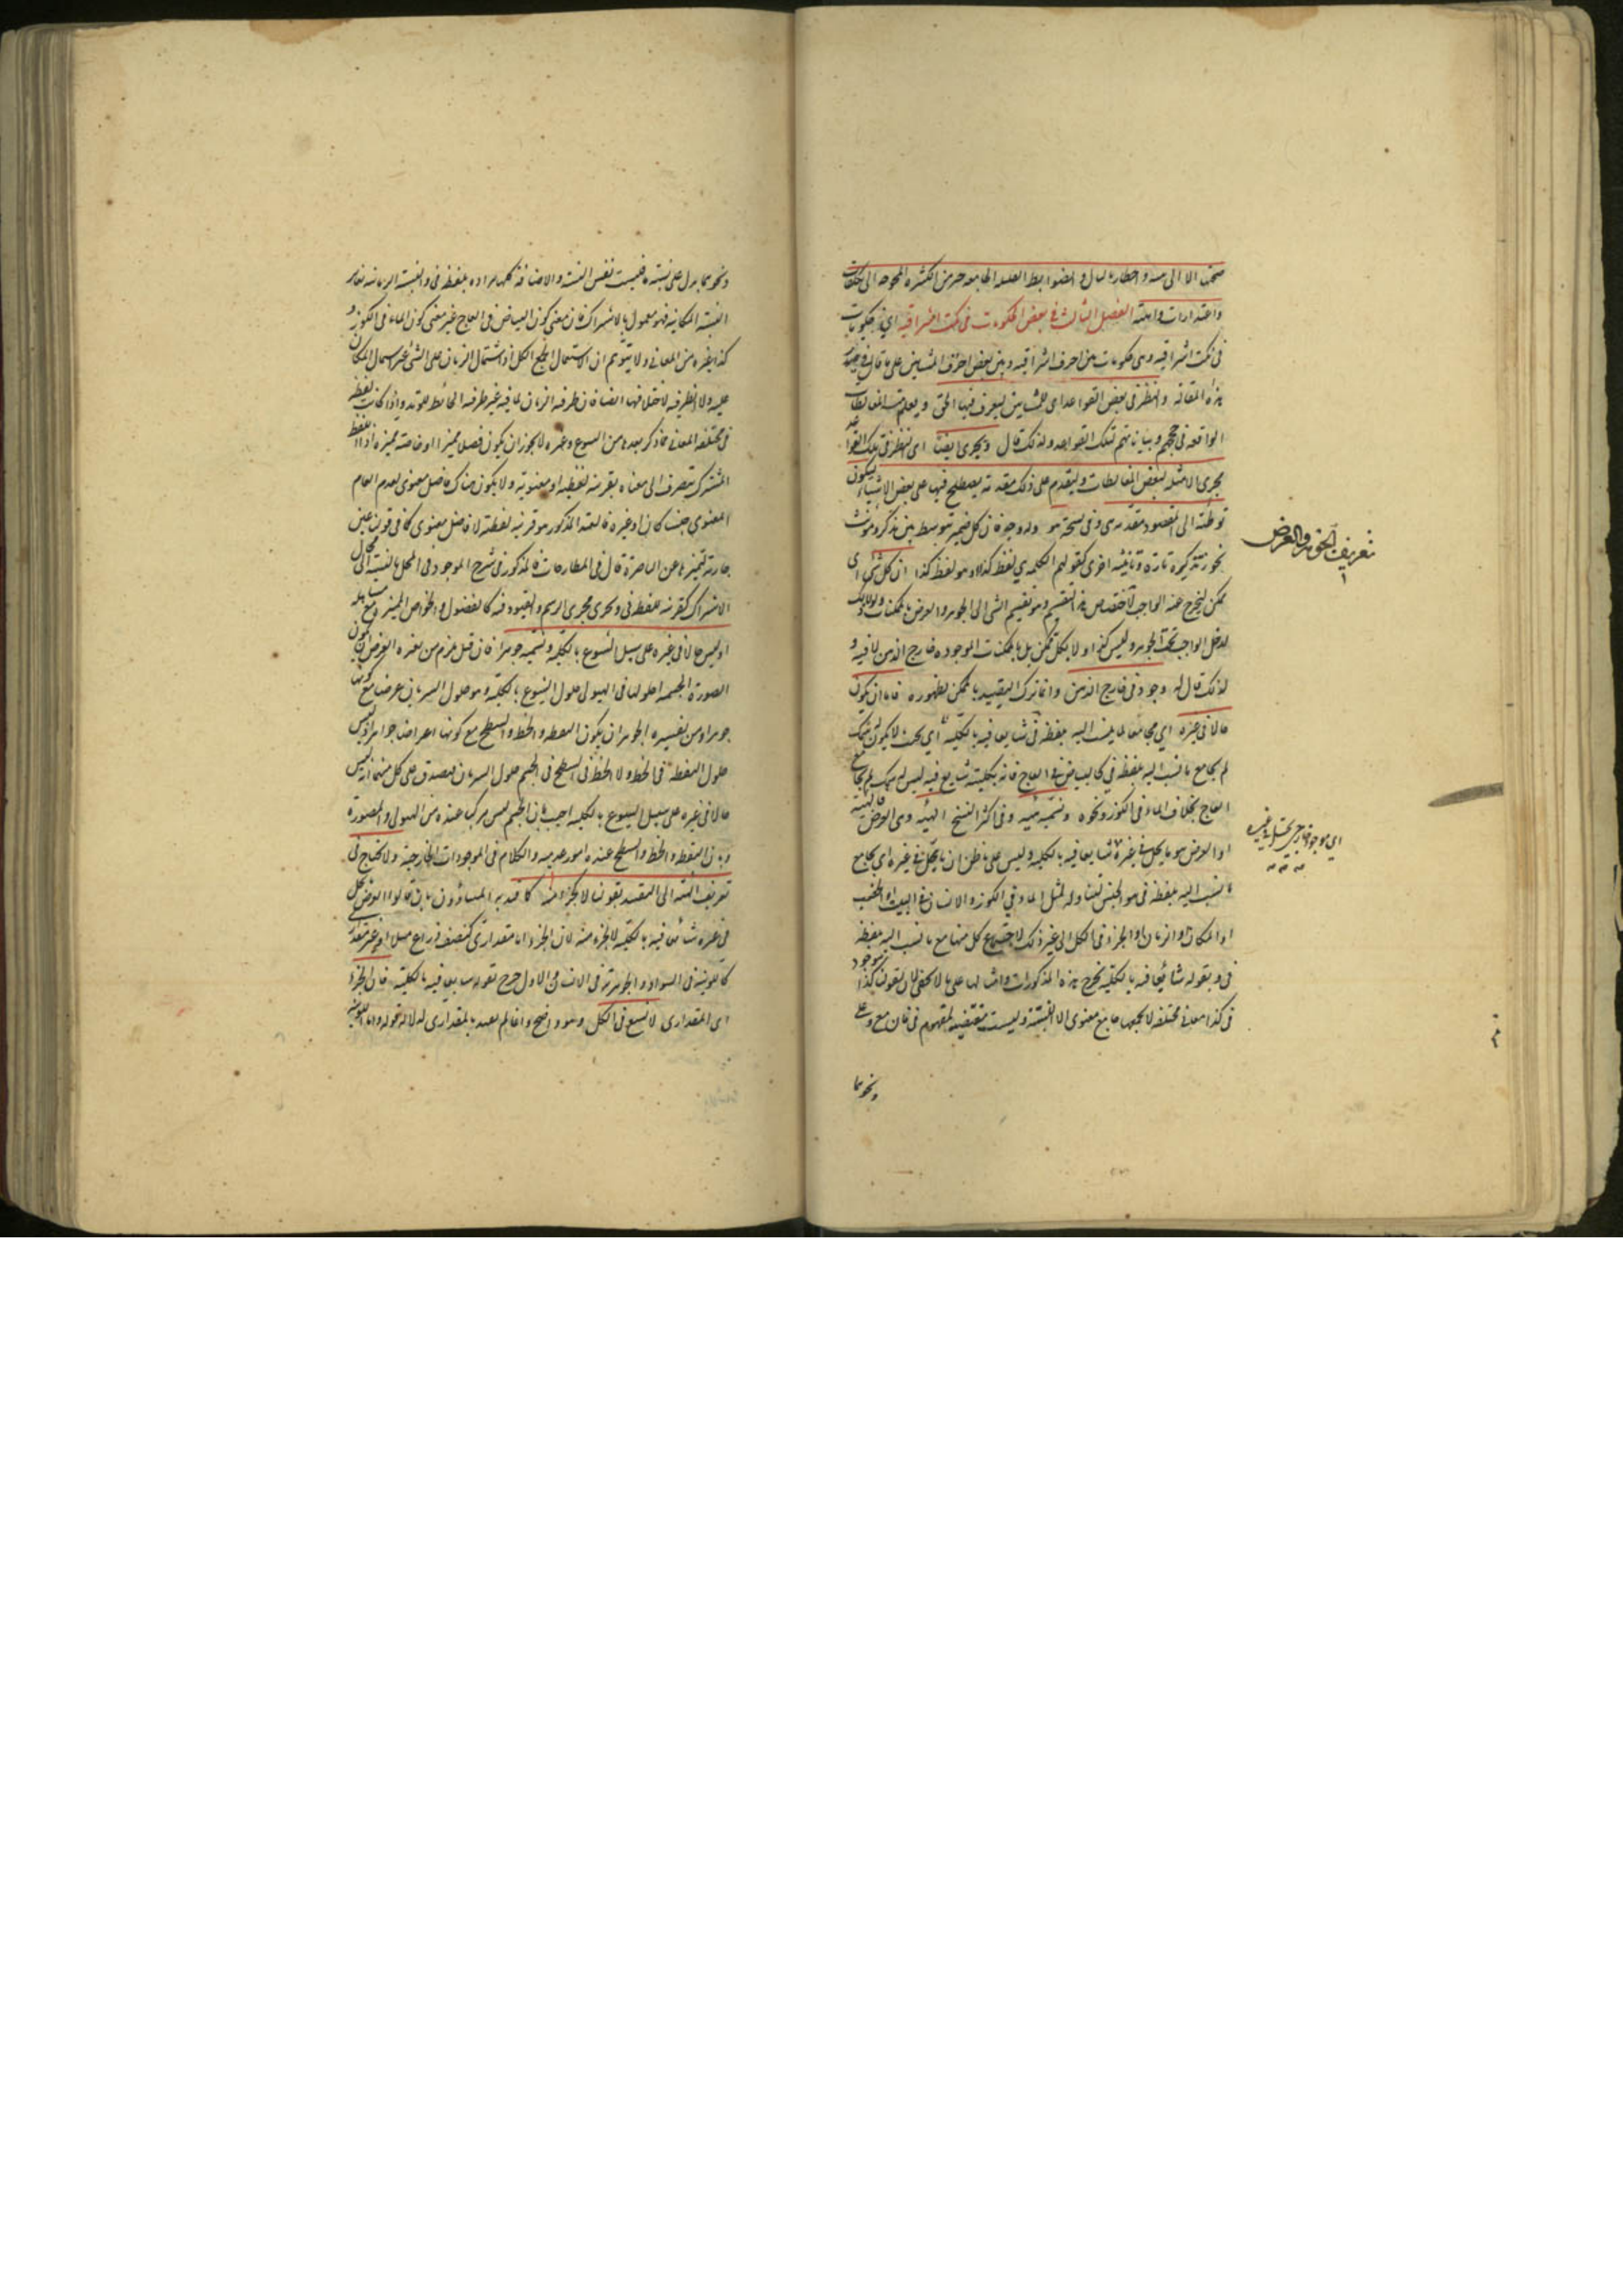 واعتذارات واهية الفصل الثالث في بعض الحكومات في نكت اشراقية اي في حكومات
في نكت اشراقية وهي حكومات بين احرف اشراقية وبين بعض احرف المشائين على ما قال في صدر
هذه المقالة والنظر في بعض القواعد اي للمشائين ليعرف فيها الحق ويعلم منه المغالطات
الواقعة في حججهم وبياناتهم لتلك القواعد ولذلك قال ويجري ايضا اي النظر في تلك القواعد
مجرى الامثلة لبعض المغالطات وليتقدم على ذلك مقدمة يصطلح فيها على بعض الاشياء ليكون
توطئة الى المقصود مقدمة هي وفي نسخة هو وله وجه فان كل ضمير توسط بين مذكر ومؤنث
يجوز تذكيره تارة وتأنيثه اخرى كقولهم الكلمة هي لفظ كذا او هو لفظ كذا ان كل شي اي
ممكن ليخرج عنه الواجب لاختصاص هذا التقسيم وهو تقسيم الشي الى الجوهر والعرض بالممكنات ولولا ذلك
لدخل الواجب تحت الجوهر وليس كذا ولا بكل ممكن بل بالممكنات الموجودة خارج الذهن لا فيه و
لذلك قال له وجود في خارج الذهن وانما ترك التقييد بالممكن لظهوره فاما ان يكون
حالا في غيره اي مجامعا لما ينسب اليه بلفظة في شايعا فيه بالكلية اي بحيث لا يكون له سمك
لم يجامع ما نسب اليه بلفظة في كالبياض في العاج فانه بكليته شايع فيه ليس له سمك لم يجامع
العاج بخلاف الماء في الكوز ونحوه ونسميه هيئة وفي اكثر النسخ الهيئة وهي العرض فالهيئة
او العرض هو ما يحل في غيره شايعا فيه بالكلية وليس على ما ظن ان ما يحل في غيره اي يجامع
ما نسب اليه بلفظة في هو الجنس لتناوله لمثل الماء في الكوز والانسان في البيت او الخصب
او المكان او الزمان او الجزء في الكل الى غير ذلك لاجتماع كل منها مع ما نسب اليه بلفظة
في وبقوله شائعا فيه بالكلية يخرج هذه المذكورات وامثالها على ما لا يخفى لان لقولنا كذا موجود
في كذا معان مختلفة لا يجمعها جامع معنوي الا النسبة وليست مقتضية لمفهوم في فان مع وعلى
ونحوهما
تعريف الجوهر والعرض
اي موجود خارجي يحل في غيره
ونحوهما يدل على نسبة فليست نفس النسبة والاضافة كلها مرادة بلفظة في والنسبة الزمانية تغاير
النسبة المكانية فهو معمول بالاشتراك فان معنى كون البياض في العاج غير معنى كون الماء في الكوز و
كذا غيره من المعاني ولا يتوهم ان الاشتمال يجمع الكل اذ اشتمال الزمان على الشي غير اشتمال المكان
عليه ولا الظرفية لاختلافها ايضا فان ظرفية الزمان لما فيه غير ظرفية الحائط للوتد واذا كانت لفظة
في مختلفة المعاني فما ذكر بعدها من الشيوع وغيره لا يجوز ان يكون فصلا مميزا او خاصة مميزة اذ اللفظ
المشترك يتصرف الى معناه بقرينة لفظية او معنوية ولا يكون هناك فاصل معنوي لعدم العام
المعنوي جنسا كان او غيره فالهيئة المذكورة هو قرينة لفظية لا فاصل معنوي كما في قولنا عين
جارية لتميزها عن الباصرة قال في المطارحات فالمذكور في شرح الموجود في المحل بالنسبة الى محال
الاشتراك كقرينة للفظ في ويجري مجرى الرسم والقيود فيه كالفصول والخواص المميزة مع مساهلة
او ليس حالا في غيره على سبيل الشيوع بالكلية ونسميه جوهرا فان قيل يلزم من تفسيره العرض ان يكون
الصورة الجسمية حلولها في الهيولى حلول الشيوع بالكلية وهو حلول السريان عرضا مع كونها
جوهرا ومن تفسيره الجوهر ان يكون النقطة والخط والسطح مع كونها اعراضا جواهر اذ ليس
حلول النقطة في الخط ولا الخط في السطح في الجسم حلول السريان فيصدق على كل منها انه ليس
حالا في غيره على سبيل الشيوع بالكلية اجيب بان الجسم ليس مركبا عنده من الهيولى والصورة
وبان النقطة والخط والسطح عنده امور عدمية والكلام في الموجودات الخارجية ولا نحتاج في
تعريف الهيئة الى التقييد بقولنا لا كجزء منه كما قيده المشاؤون بان قالوا العرض ما يحل
في غيره شائعا فيه بالكلية لا كجزء منه لان الجزء اما مقداري كنصف ذراع مثلا او غير مقداري
كاللونية في السواد والجوهرية في الانسان والاول خرج بقوله شايعا فيه بالكلية فان الجزء
اي المقداري لا يشيع في الكل وهو واضح وانما لم يقيد بالمقداري لدلالة قوله واما اللونية